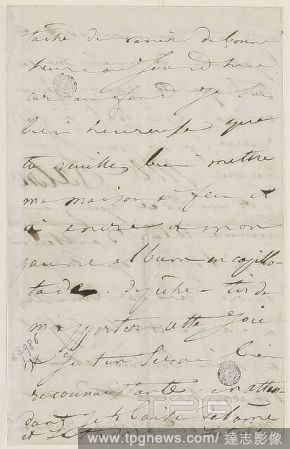 tâche de venir de bonne
heure aujourd'hui
car au fond je suis
bien heureuse que
tu veuilles bien mettre
ma maison à feu et
à encre et mon
pauvre album en capilo-
tade. dépêche-toi de
m'apporter cette joie
et je t'en serai bien
reconnaissante en atten-
dant je te baise
www.tpgnews.com | 達志影像